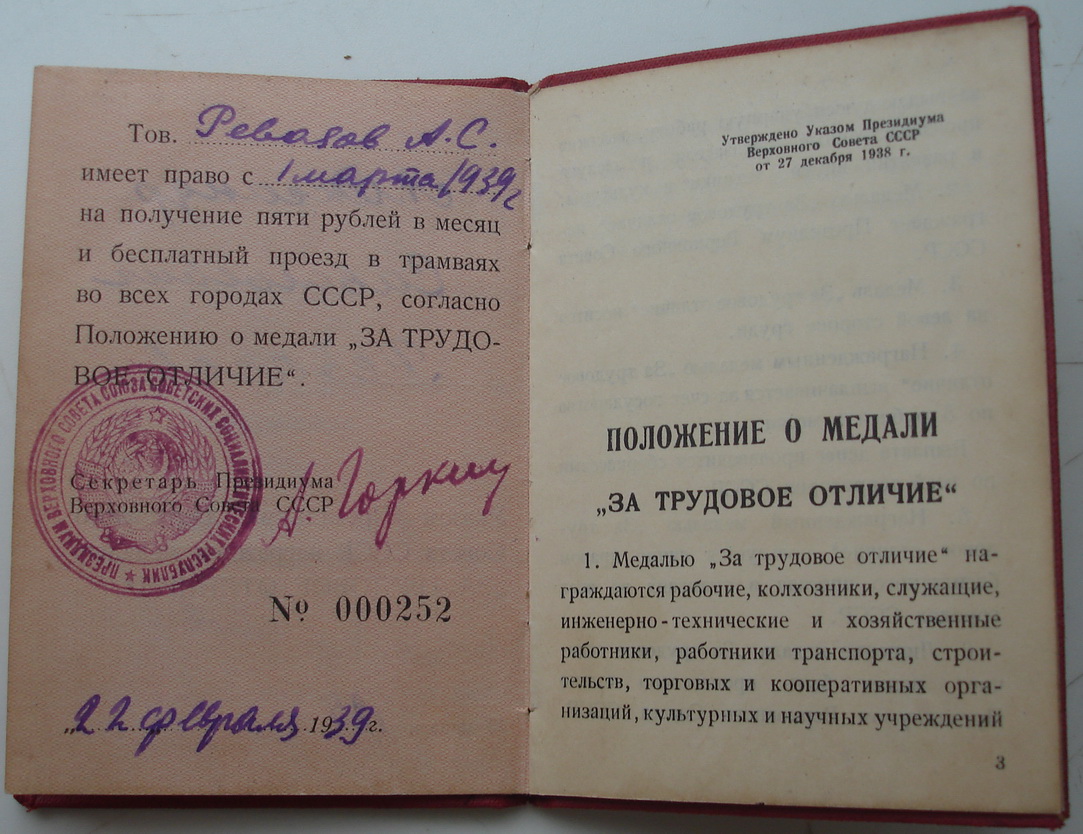 Тов. Ревазов А.С.
имеет право с 1 марта 1939 г
на получение пяти рублей в месяц
и бесплатный проезд в трамваях
во всех городах СССР, согласно
Положению о медали „ЗА ТРУДО-
ВОЕ ОТЛИЧИЕ“.
ПРЕЗИДИУМ ВЕРХОВНОГО СОВЕТА СОЮЗА СОВЕТСКИХ СОЦИАЛИСТИЧЕСКИХ РЕСПУБЛИК
Секретарь Президиума
Верховного Совета СССР
А. Горкин
№ 000252
„22 февраля 1939 г.
Утверждено Указом Президиума
Верховного Совета СССР
от 27 декабря 1938 г.
ПОЛОЖЕНИЕ О МЕДАЛИ
„ЗА ТРУДОВОЕ ОТЛИЧИЕ“
1. Медалью „За трудовое отличие“ на-
граждаются рабочие, колхозники, служащие,
инженерно-технические и хозяйственные
работники, работники транспорта, строи-
тельств, торговых и кооперативных орга-
низаций, культурных и научных учреждений
3